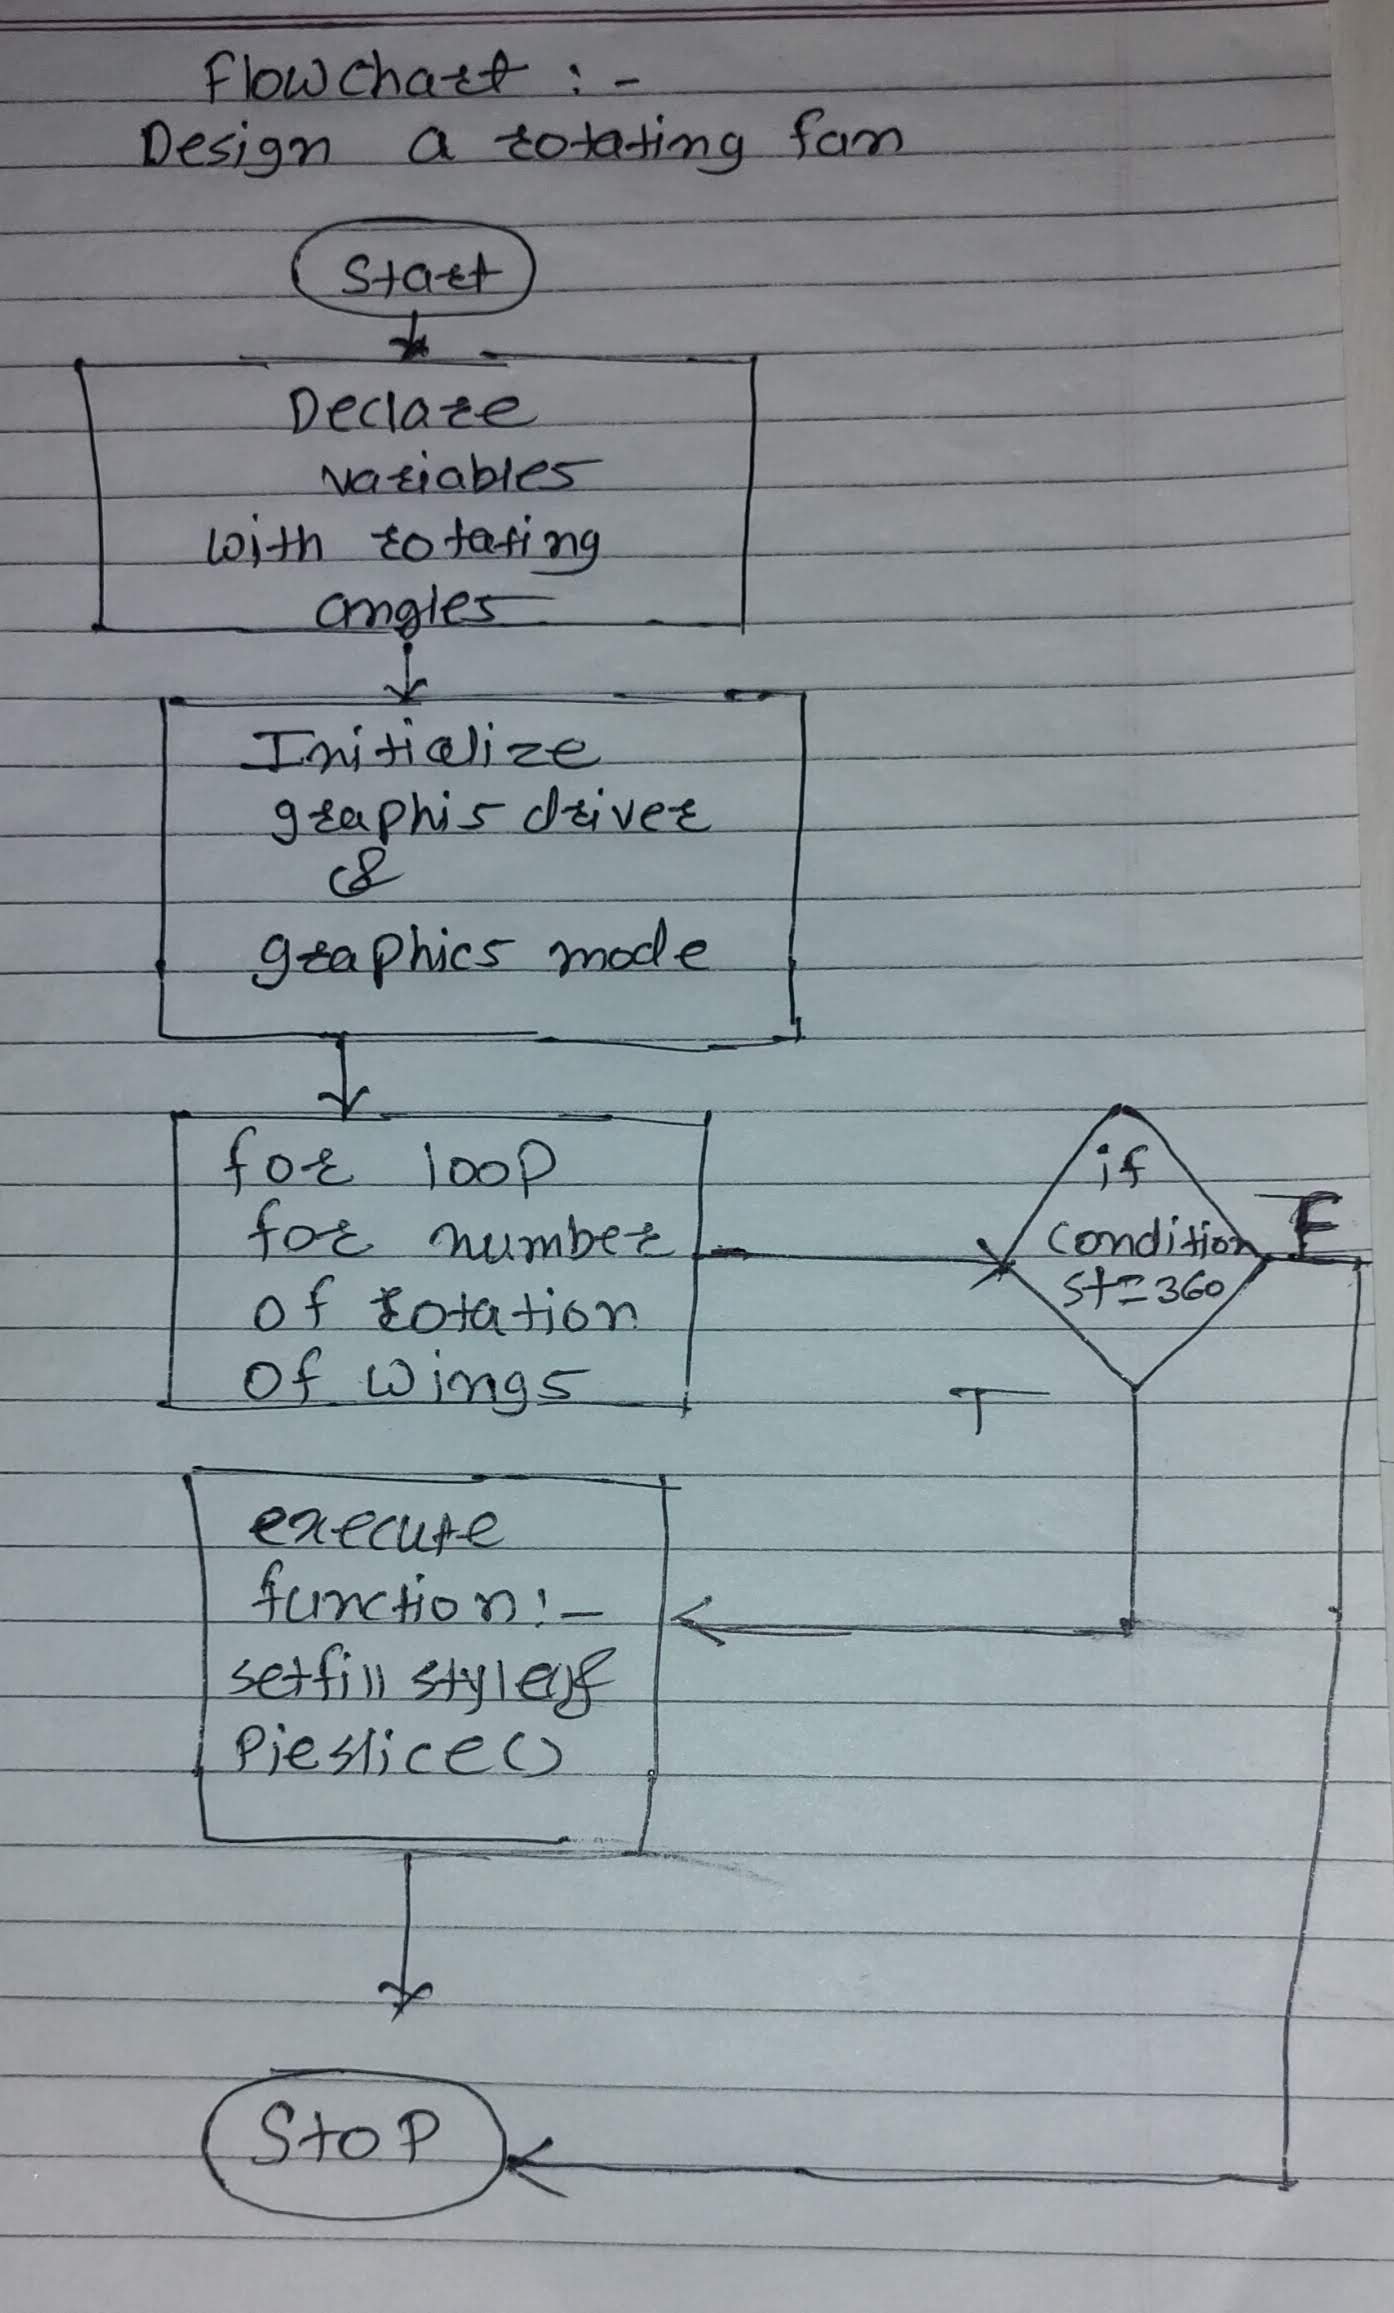 Flowchart :-
Design a rotating fan
Start
Declare
variables
with rotating
angles
Initialize
graphis driver
&
graphics mode
for loop
for number
of rotation
of wings
if
condition
st=360
F
T
execute
function:-
setfill style
Pieslice()
Stop